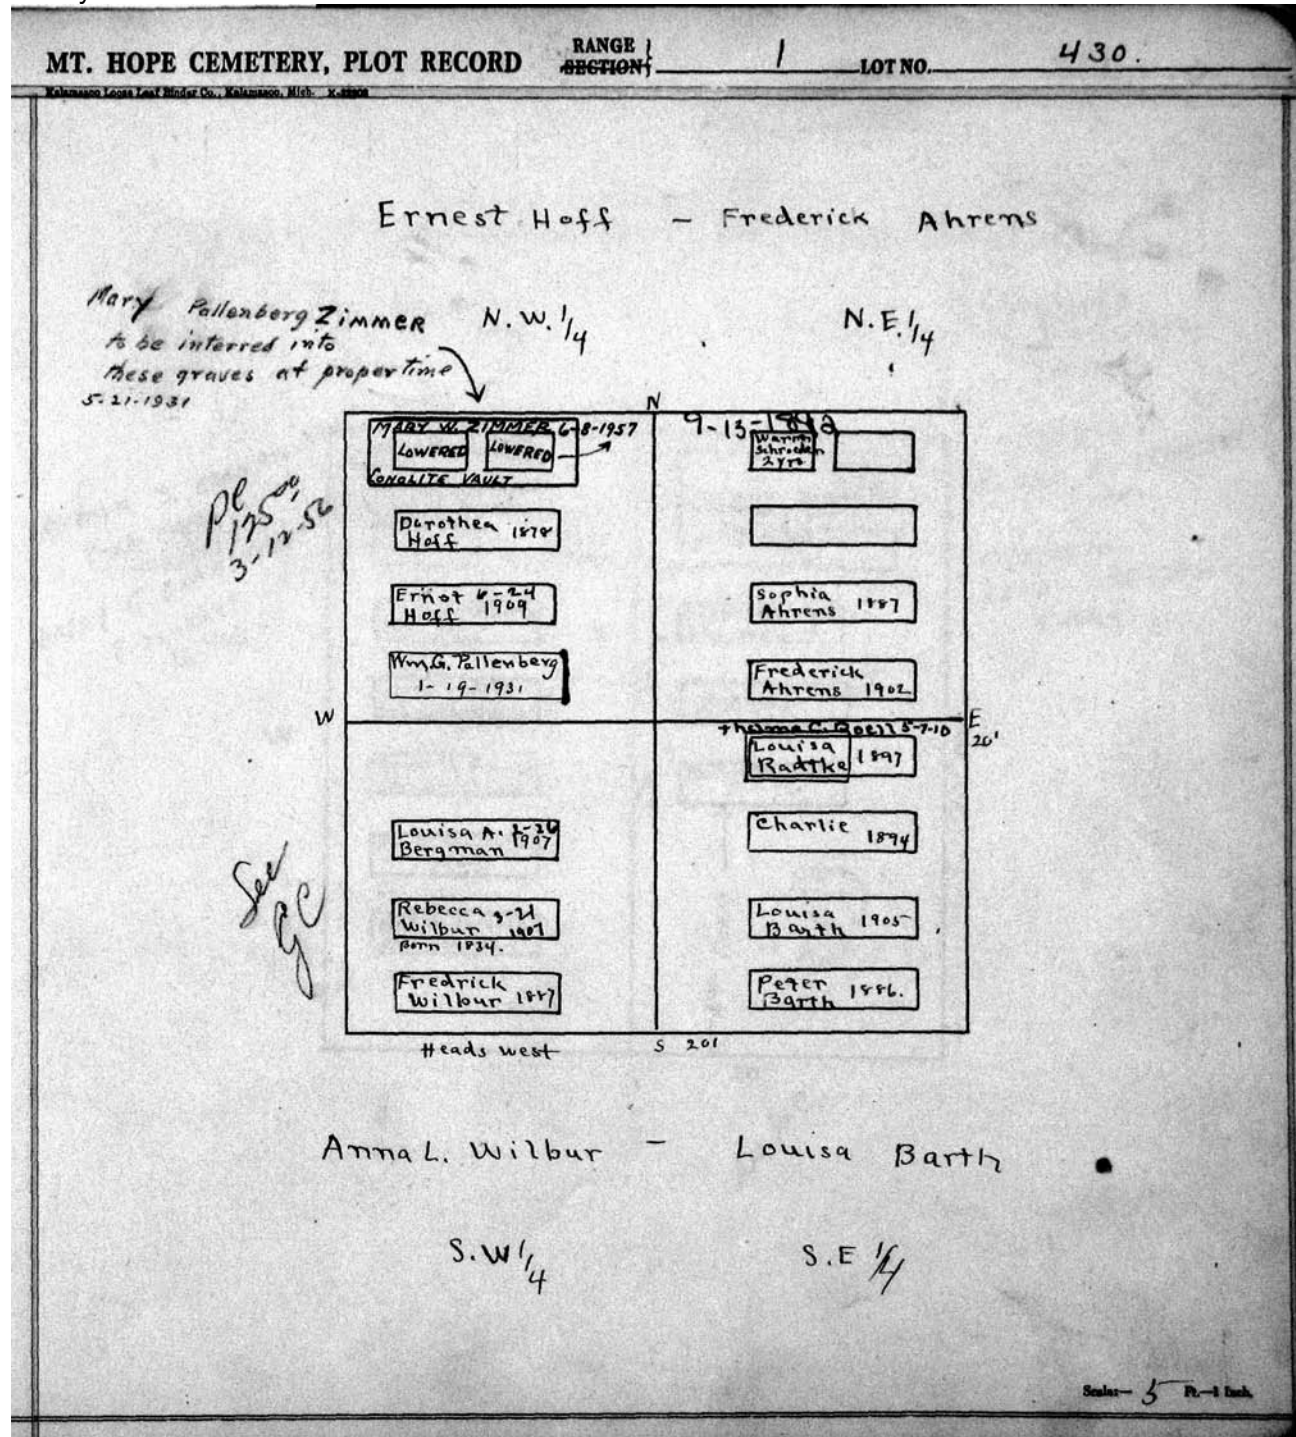 MT. HOPE CEMETERY, PLOT RECORD RANGE SECTION 1 LOT NO. 430.
Kalamazoo Loose Leaf Binder Co., Kalamazoo, Mich.
Ernest Hoff - Frederick Ahrens
Mary Pallenberg Zimmer
to be interred into
these graves at proper time
5-21-1931
N.W. 1/4
N.E. 1/4
N
MARY W. ZIMMER 6-8-1957
LOWERED LOWERED
CONOLITE VAULT
Dorothea
Hoff
Ernst 6-24
Hoff 1909
Wm. G. Pallenberg
1-19-1931
3-12-56
9-13-
Warren
Schroeder
2 yrs
Sophia
Ahrens 1887
Frederick
Ahrens 1902
W
E
20'
5-7-10
Louisa
Radtke 1897
Charlie
1894
Louisa
Barth 1905
Peter
Barth 1886.
See
GC
Louisa A. 2-26
Bergman 1907
Rebecca 3-21
Wilbur 1907
Born 1834.
Fredrick
Wilbur 1887
Heads west
S 20'
Anna L. Wilbur - Louisa Barth
S.W 1/4
S.E 1/4
Scale:— 5 Ft.—1 Inch.